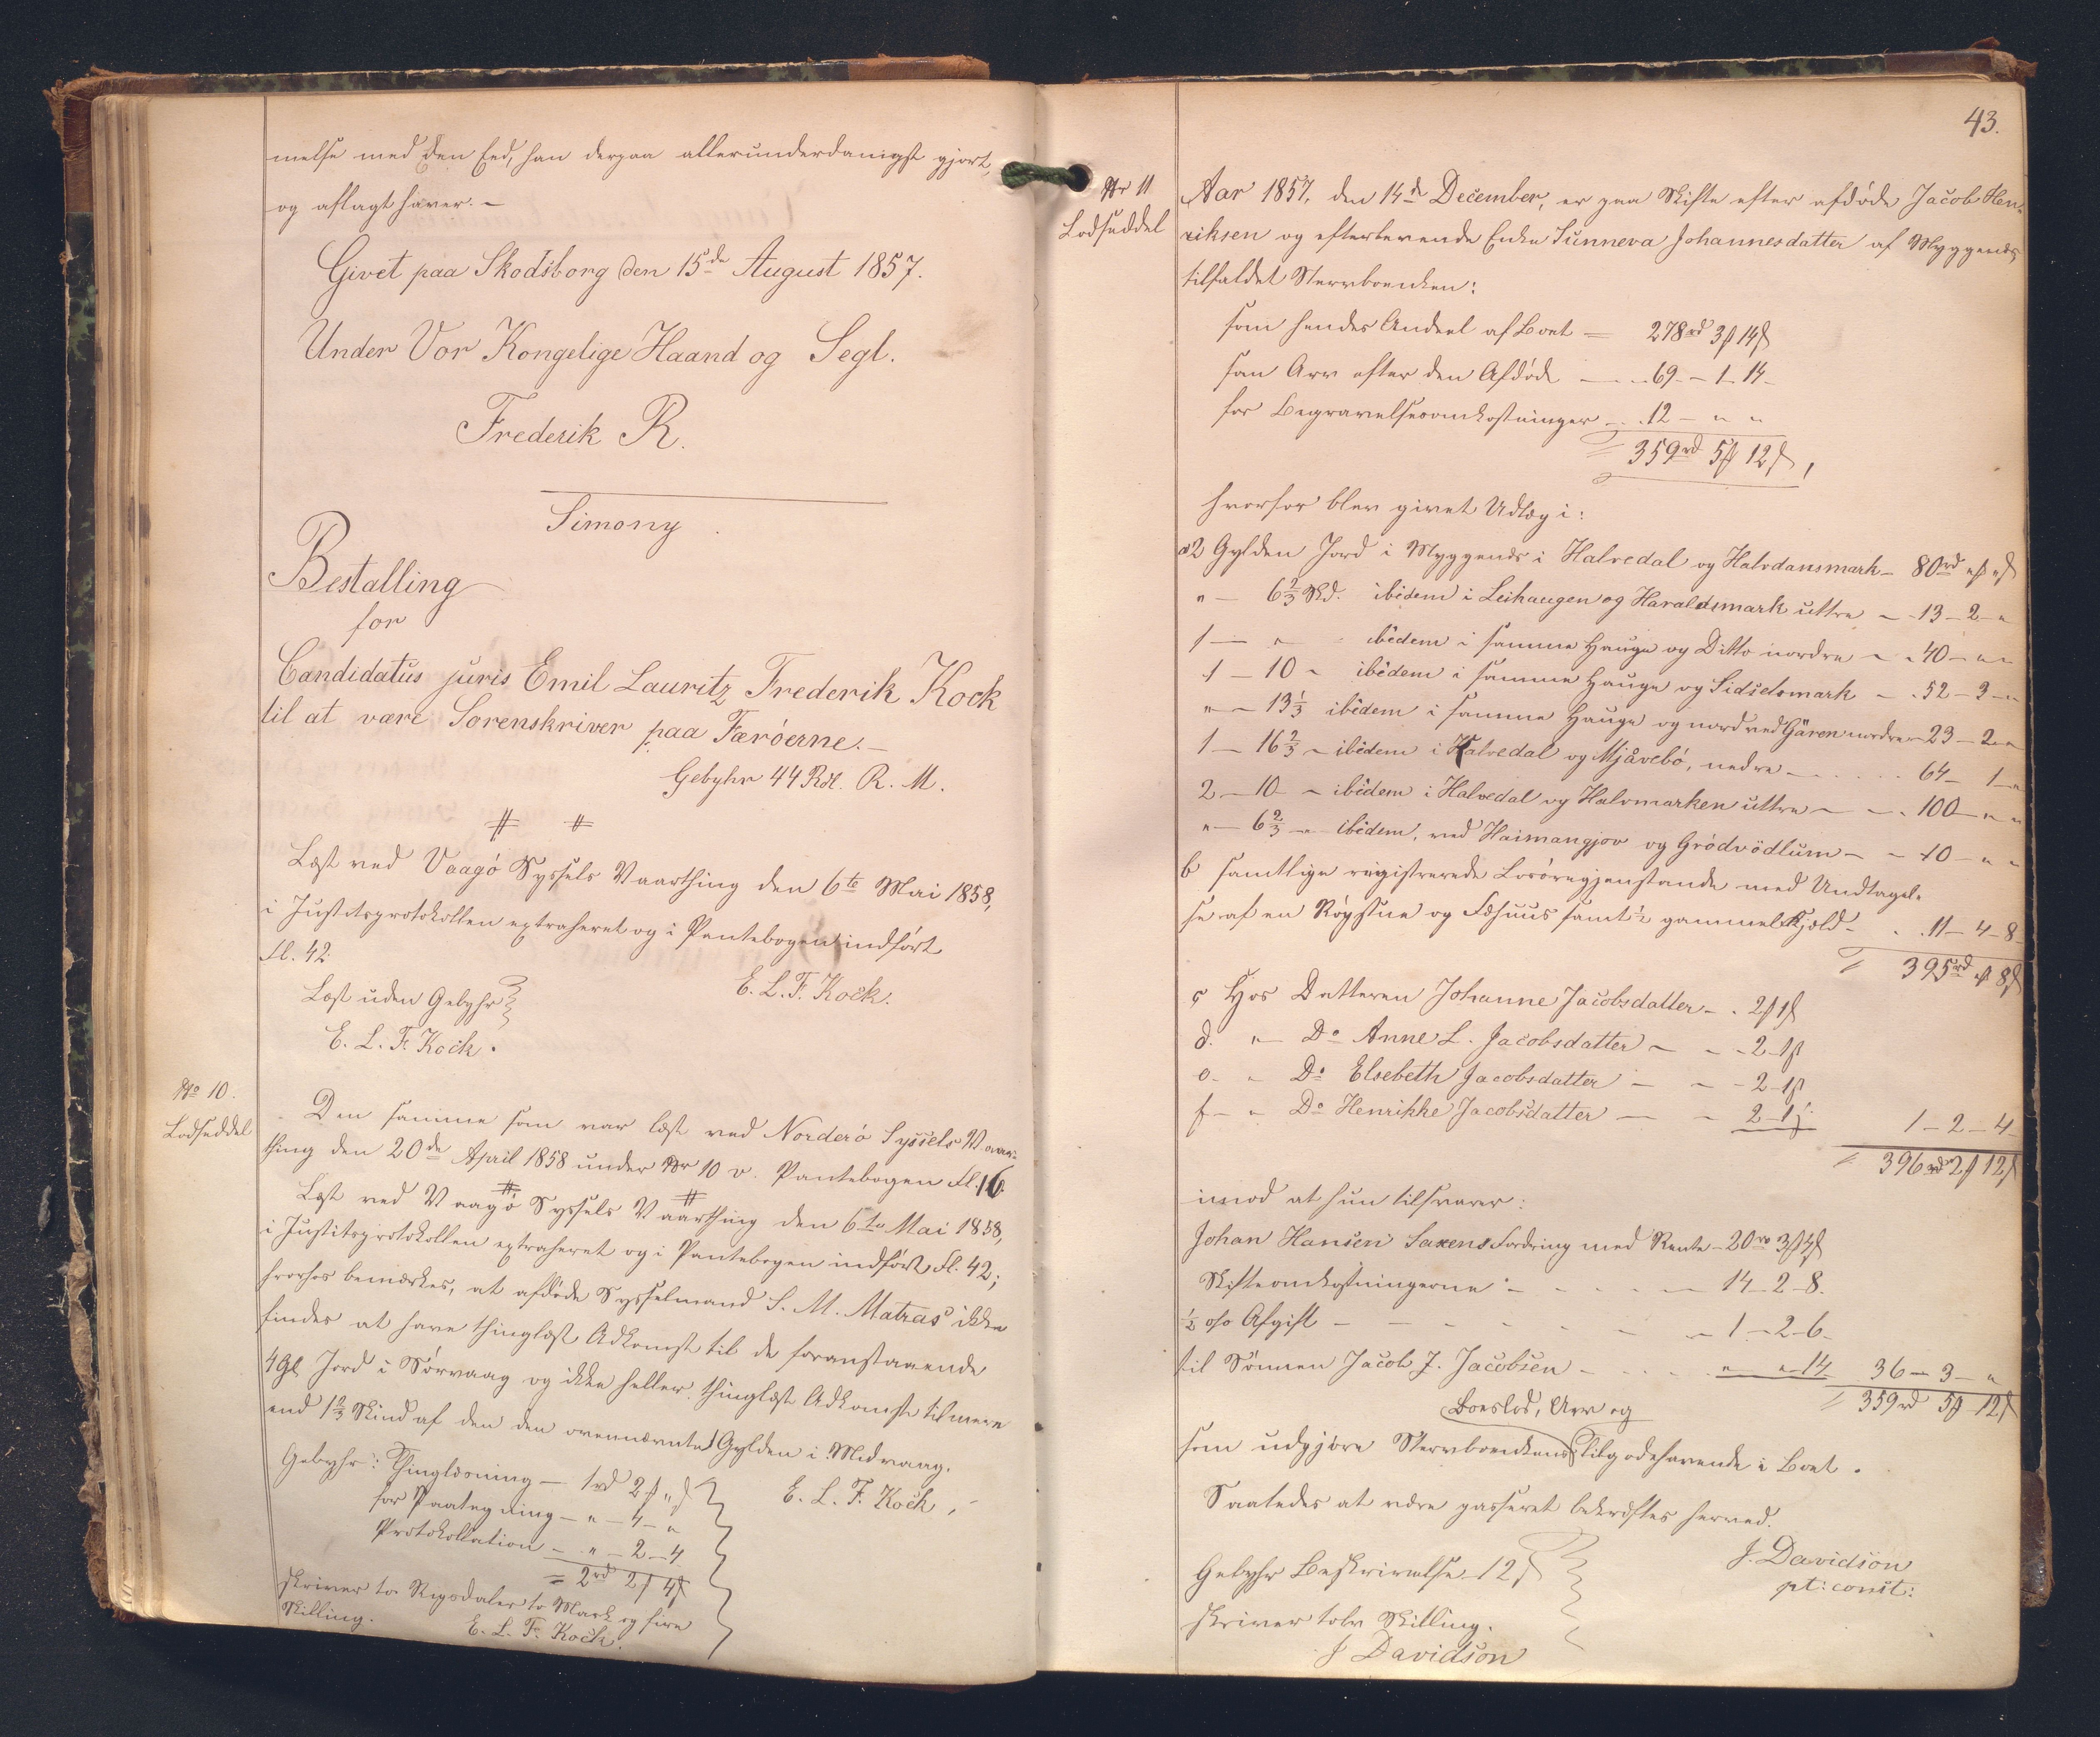 melse med den Eed, han derpaa allerunderdanigst gjort,
og aflagt haver. –
Givet paa Skodsborg den 15de August 1857.
Under Vor Kongelige Haand og Segl.
Frederik R.
Simony.
Bestalling
for
Candidatus juris Emil Lauritz Frederik Kock
til at være Sorenskriver paa Færöerne. –
Gebyhr 44 Rdl. R. M.
Læst ved Vaagö Syssels Vaarthing den 6te Mai 1858,
i Justitsprotokollen extraheret og i Pantebogen indført
Fl. 42
E. L. F. Kock.
Læst uden Gebyhr
E. L. F. Kock.
No 10.
Lodseddel
Den samme som var læst ved Norderö Syssels Vaar-
thing den 20de April 1858 under Nr 10 v. Pantebogen Fl. 16.
Læst ved Vaagö Syssels Vaarthing den 6te Mai 1858,
i Justitsprotokollen extraheret og i Pantebogen indført Fl. 42;
hvorhos bemærkes, at afdøde Sysselmand S. M. Matras ikke
findes at have thinglæst Adkomst til de foranstaaende
4 Gl Jord i Sörvaag og ikke heller thinglæst Adkomst til mere
end 1 2/3 Skind af den den ovennævnte 1 Gylden i Midvaag.
E. L. F. Kock.
Gebyhr: Thinglæsning – 1rd 2ß „ß
for Paategning – „ – 4 – „
Protokollation – „ – 2 – 4
= 2rd 2ß 4ß
skriver to Rigsdaler to Mark og fire
Skilling.
E. L. F. Kock.
43.
Nr 11
Lodseddel
Aar 1857, den 14de December, er paa Skifte efter afdöde Jacob Hen-
riksen og efterlevende Enke Sunneva Johannesdatter af Myggenæs
tilfaldet Stervboenken:
som hendes Andeel af Boet = 278rd 3ß 14ß
som Arv efter den Afdöde – 69 – 1 – 14 –
for Begravelsesomkostninger – 12 – „ „
= 359rd 5ß 12ß,
hvorfor blev givet Udlæg i:
a 2 Gylden Jord i Myggenæs i Halvedal og Halvdansmark – 80rd „ß „ß
„ – 6 2/3 Skd. ibidem i Leihaugen og Haraldsmark uttre – 13 – 2 – „
1 – „ – ibidem i samme Hauge og Ditto nordre – 40 – „ „
1 – 10 – ibidem i samme Hauge og Sidselsmark – 52 – 3 – „
„ – 13 1/3 ibidem i samme Hauge og nord ved Gären nordre – 23 – 2 – „
1 – 16 2/3 – ibidem i Halvedal og Mjåvebö, nedre – 64 – 1 – „
2 – 10 – ibidem i Halvedal og Halvmarken uttre – 100 – „ „
„ – 6 2/3 – ibidem, ved Haimangjov og Grödvödlum – 10 – „ „
b samtlige registrerede Lösöregjenstande med Undtagel-
se af en Rögstue og Fæhuus samt 1/2 gammel Kjeld – 11 – 4 – 8 –
= 395rd „ß 8ß
c Hos Datteren Johanne Jacobsdatter – 2ß 1ß
d. „ – Do Anne L. Jacobsdatter – 2 – 1ß
e. – Do Elsebeth Jacobsdatter – 2 – 1ß
f – „ Do Henrikke Jacobsdatter – 2 – 1ß 1 – 2 – 4
= 396rd 2ß 12ß
imod at hun tilsvarer:
Johan Hansen Saxens Fordring med Rente – 20rd 3ß 4ß
Skifteomkostningerne – 14 – 2 – 8.
1/2 o/o Afgift – 1 – 2 – 6 –
til Sönnen Jacob J. Jacobsen – „ „ – 14 36 – 3 – „
= 359rd 5ß 12ß
Boeslod, Arv og
som udgjöre Stervboenkens Tilgodehavende i Boet.
Saaledes at være passeret bekræftes herved.
J. Davidson
pt: const:
Gebyhr Beskrivelse 12ß
skriver tolv Skilling.
J Davidson